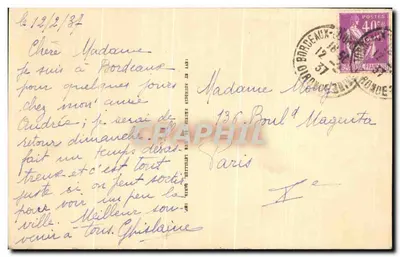 le 12/2/37
Chère Madame
Je suis à Bordeaux
pour quelques jours
chez mon amie
Andrée; je serai de
retour dimanche. Il
fait un temps désas-
treux et c'est tout
juste si on peut sortir
pour voir un peu la
ville. Meilleur sou-
venir à tous. Ghislaine
Madame
136 Bould Magenta
Paris
Xe
BORDEAUX
GIRONDE
12
37
POSTES
40c
CPARHIL